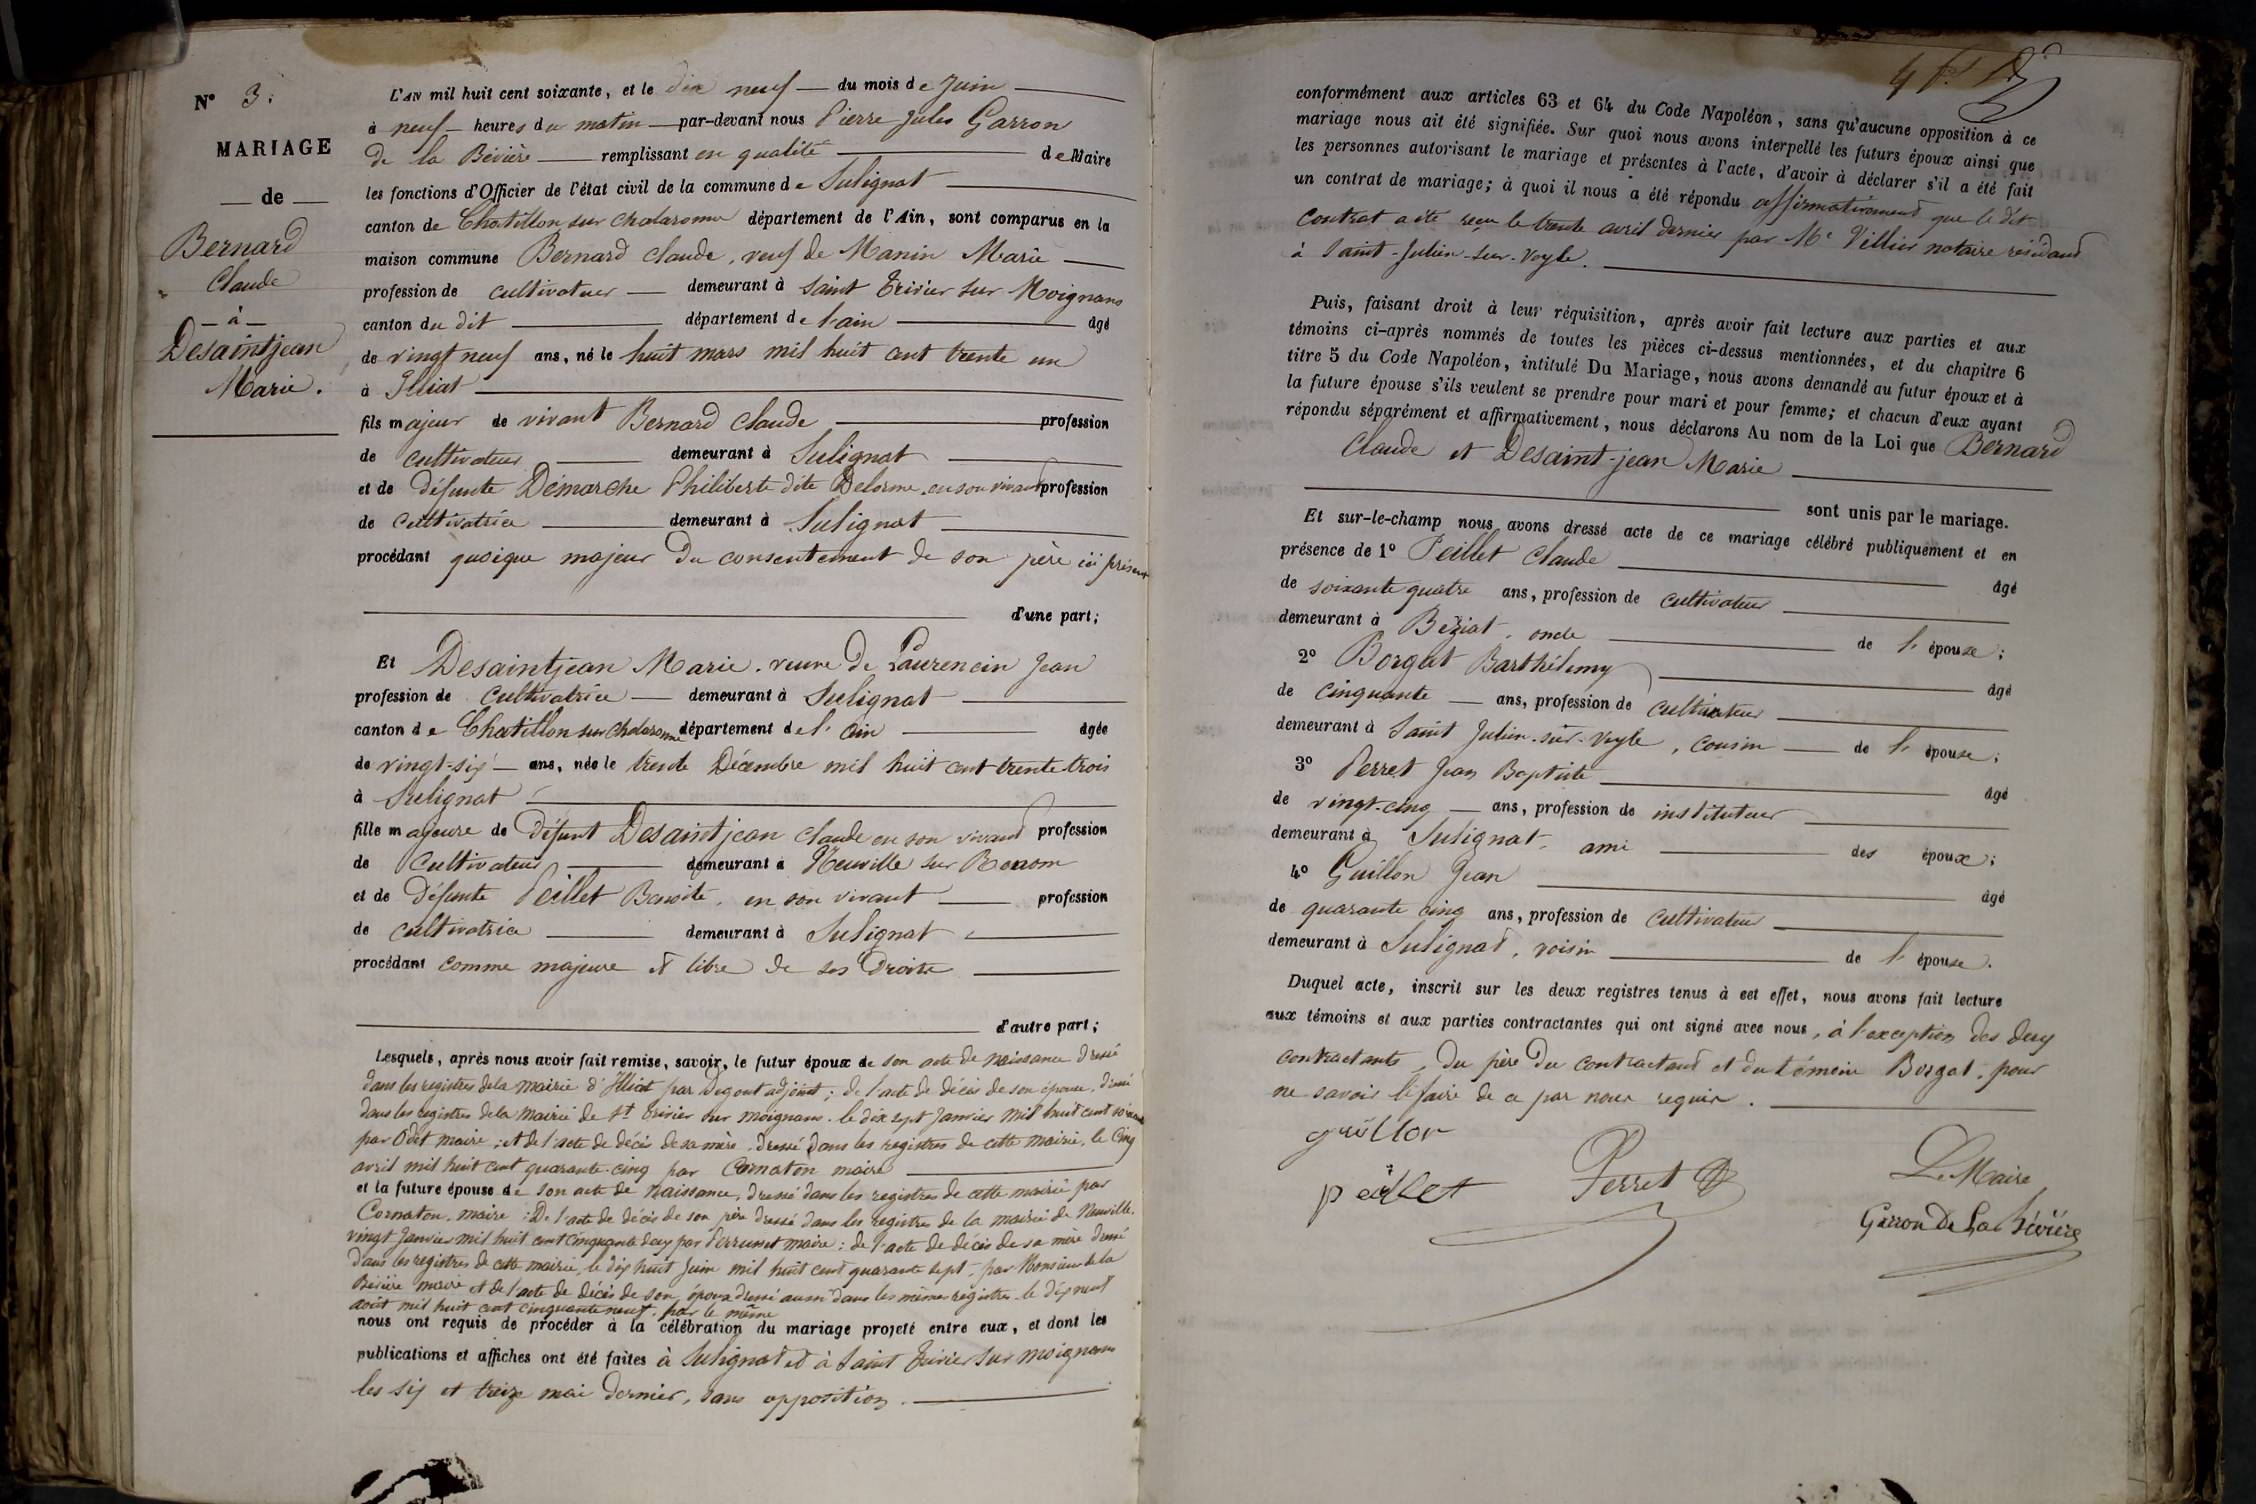 N° 3.
MARIAGE
de
Bernard
Claude
à
Desaintjean
Marie.
L'AN mil huit cent soixante, et le dix neuf du mois de Juin
à neuf heures du matin par-devant nous Pierre Jules Garron
de la Bévière remplissant en qualité de Maire
les fonctions d'Officier de l'état civil de la commune de Sulignat
canton de Chatillon sur chalaronne département de l'Ain, sont comparus en la
maison commune Bernard Claude, veuf de Manin Marie
profession de cultivateur demeurant à Saint Trivier sur Moignans
canton du dit département de l'ain âgé
de vingt neuf ans, né le huit mars mil huit cent trente un
à Illiat
fils majeur de vivant Bernard Claude profession
de cultivateur demeurant à Sulignat
et de défunte Démarche Philiberte dite Delorme, en son vivant profession
de cultivatrice demeurant à Sulignat
procédant quoique majeur du consentement de son père ici présent
d'une part;
Et Desaintjean Marie, veuve de Laurencin Jean
profession de cultivatrice demeurant à Sulignat
canton de Chatillon sur chalaronne département de l'ain âgée
de vingt-six ans, née le trente Décembre mil huit cent trente trois
à Sulignat
fille majeure de défunt Desaintjean Claude en son vivant profession
de Cultivateur demeurant à Neuville sur Renom
et de défunte Peillet Benoite, en son vivant profession
de cultivatrice demeurant à Sulignat
procédant comme majeure et libre de ses Droits
d'autre part;
Lesquels, après nous avoir fait remise, savoir, le futur époux de son acte de naissance dressé
dans les registres de la mairie d'Illiat par Degout adjoint; de l'acte de décès de son épouse, dressé
dans les registres de la mairie de St Trivier sur moignans, le dix sept Janvier mil huit cent soixante
par Odet maire; et de l'acte de décès de sa mère, dressé dans les registres de cette mairie, le cinq
avril mil huit cent quarante-cinq par Cornaton maire
et la future épouse de son acte de naissance, dressé dans les registres de cette mairie par
Cornaton, maire: De l'acte de décès de son père dressé dans les registres de la mairie de Neuville,
vingt Janvier mil huit cent cinquante deux par Perrusset maire: de l'acte de décès de sa mère dressé
dans les registres de cette mairie, le dix huit Juin mil huit cent quarante sept, par Monsieur de la
Bévière maire et de l'acte de décès de son époux dressé aussi dans les mêmes registres le dix neuf
août mil huit cent cinquante neuf, par le même
nous ont requis de procéder à la célébration du mariage projeté entre eux, et dont les
publications et affiches ont été faites à Sulignat et à Saint Trivier sur moignans
les six et treize mai dernier, sans opposition.
conformément aux articles 63 et 64 du Code Napoléon, sans qu'aucune opposition à ce
mariage nous ait été signifiée. Sur quoi nous avons interpellé les futurs époux ainsi que
les personnes autorisant le mariage et présentes à l'acte, d'avoir à déclarer s'il a été fait
un contrat de mariage; à quoi il nous a été répondu affirmativement que le dit
contrat a été reçu le trente avril dernier par Me Villier notaire résidant
à Saint-Julien-sur-Veyle.
Puis, faisant droit à leur réquisition, après avoir fait lecture aux parties et aux
témoins ci-après nommés de toutes les pièces ci-dessus mentionnées, et du chapitre 6
titre 5 du Code Napoléon, intitulé Du Mariage, nous avons demandé au futur époux et à
la future épouse s'ils veulent se prendre pour mari et pour femme; et chacun d'eux ayant
répondu séparément et affirmativement, nous déclarons Au nom de la Loi que Bernard
Claude et Desaint-jean Marie
sont unis par le mariage.
Et sur-le-champ nous avons dressé acte de ce mariage célébré publiquement et en
présence de 1° Peillet Claude âgé
de soixante quatre ans, profession de cultivateur
demeurant à Beziat, oncle de l'épouse;
2° Borgat Barthélemy âgé
de cinquante ans, profession de cultivateur
demeurant à Saint Julien-sur-Veyle, cousin de l'épouse;
3° Perret Jean Baptiste âgé
de vingt-cinq ans, profession de instituteur
demeurant à Sulignat, ami des époux;
4° Guillon Jean âgé
de quarante cinq ans, profession de cultivateur
demeurant à Sulignat, voisin de l'épouse.
Duquel acte, inscrit sur les deux registres tenus à cet effet, nous avons fait lecture
aux témoins et aux parties contractantes qui ont signé avec nous, à l'exception des deux
contractants, du père du contractant et du témoin Borgat, pour
ne savoir le faire de ce par nous requis.
guillon
peillet Perret
Le Maire
Garron De La Bévière